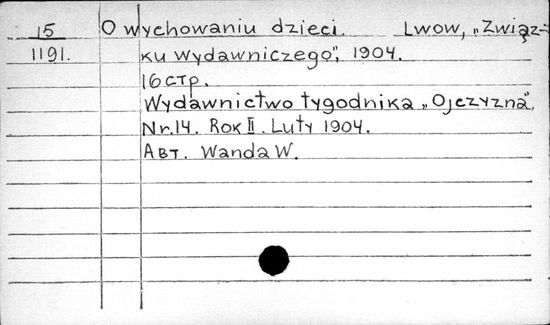 15 O wychowaniu dzieci. Lwow, „Związ-
1191. ku wydawniczego", 1904.
16 стр.
Wydawnictwo tygodnika „Ojczyzna",
Nr.14. Rok II. Luty 1904.
Авт. Wanda W.